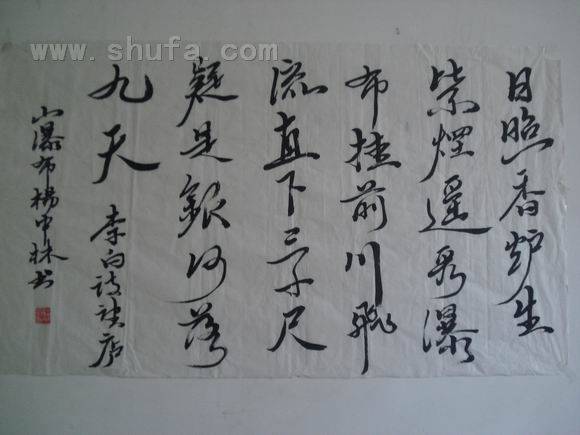 www.shufa.com
日照香炉生
紫煙遥看瀑
布挂前川飛
流直下三千尺
疑是銀河落
九天
李白诗望庐
山瀑布楊中林书